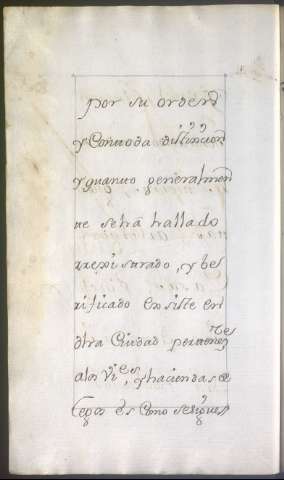 por su orden
y Con toda distincion
y quanto generalmen
te se ha hallado
rrexisturado, y be
rificado Existe en
dha Ciudad pertenez.tes
a los Vi.es, y haciendas de
legos es Como se sigue